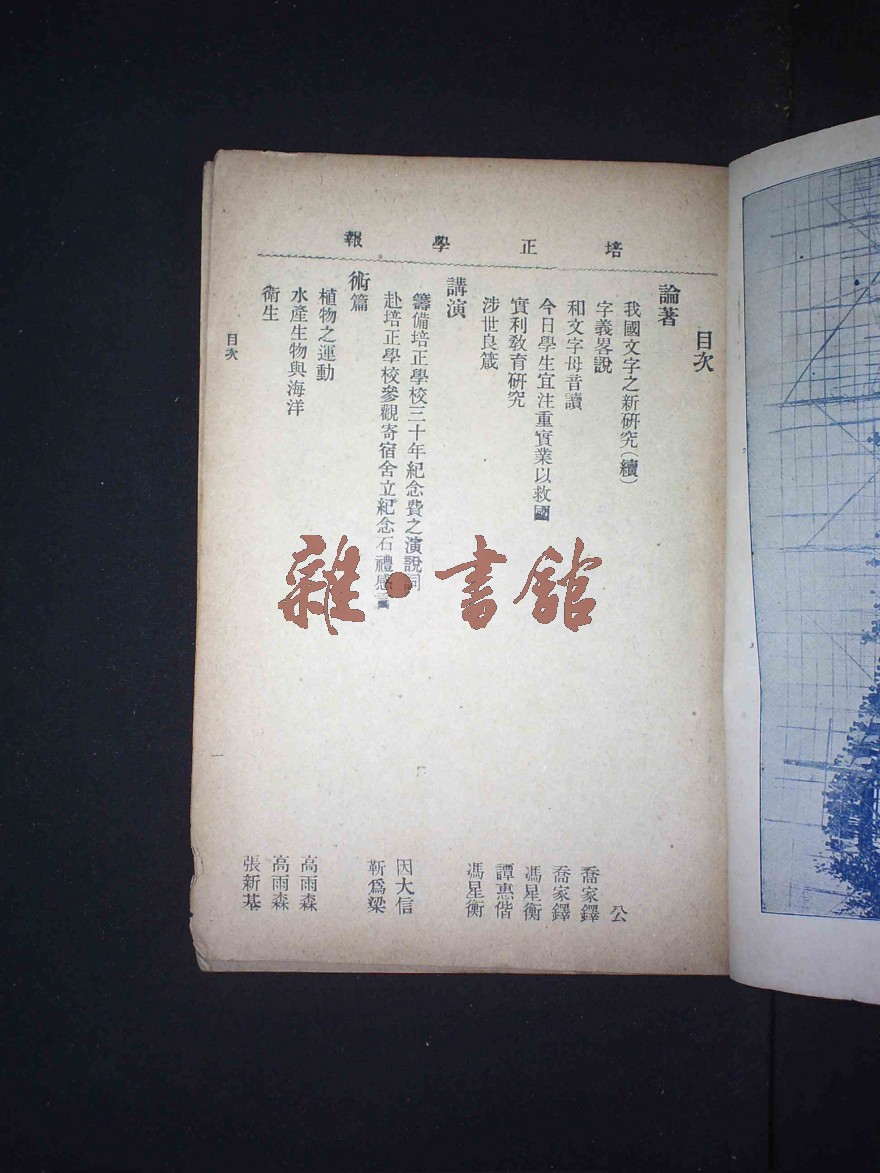 培正學報
目次
論著
我國文字之新研究(續) 公
字義畧說 喬家鐸
和文字母音讀 喬家鐸
今日學生宜注重實業以救國 馮星衡
實利教育研究 譚惠偕
涉世良箴 馮星衡
講演
籌備培正學校三十年紀念費之演說詞 因大信
赴培正學校參觀寄宿舍立紀念石禮感言 靳爲梁
術篇
植物之運動 高雨森
水產生物與海洋 高雨森
衛生 張新基
目次
雜·書館